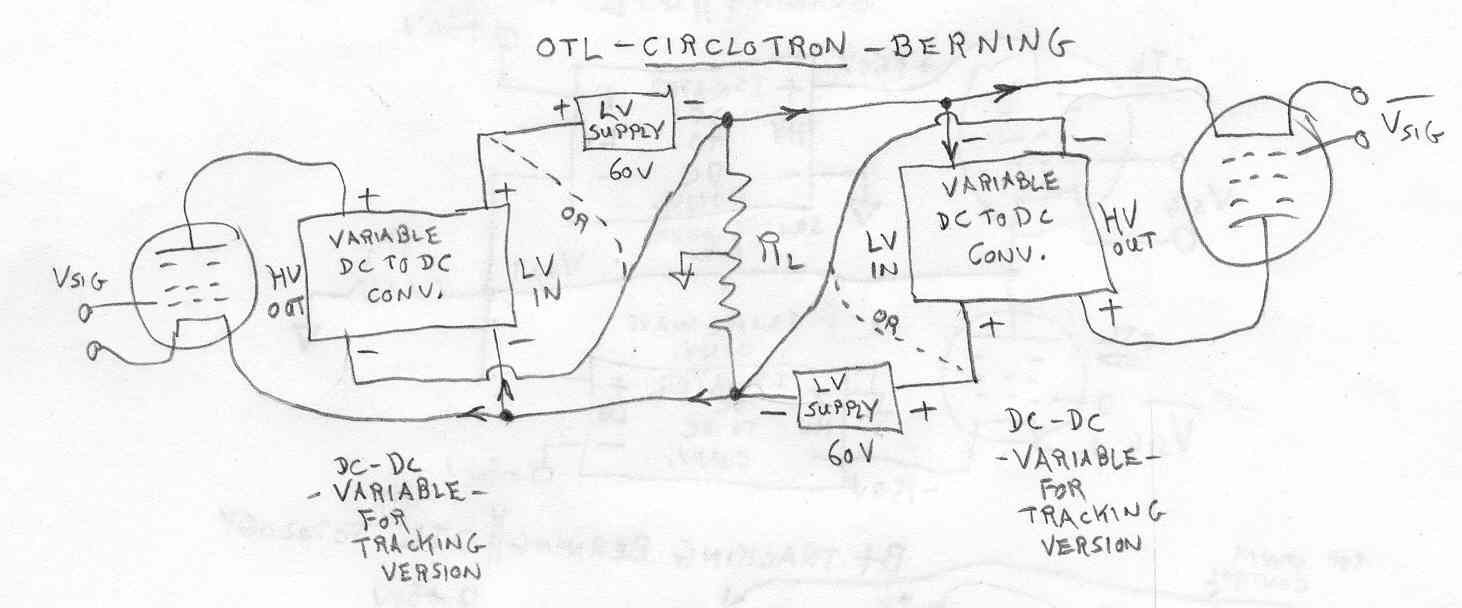 OTL - CIRCLOTRON - BERNING
+ LV SUPPLY -
60V
VSIG
+ +
VARIABLE
DC TO DC
CONV.
HV
OUT
LV
IN
- -
OR
RL
- -
VARIABLE
DC TO DC
CONV.
LV
IN
HV
OUT
+ +
VSIG
OR
- LV SUPPLY +
60V
DC-DC
- VARIABLE -
FOR
TRACKING
VERSION
DC-DC
- VARIABLE -
FOR
TRACKING
VERSION
RF TRACKING BERNING